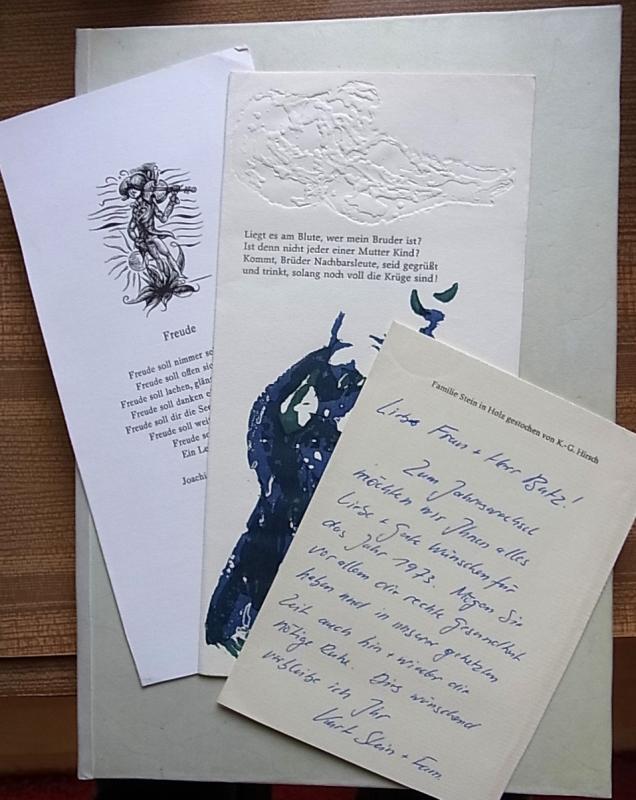 Freude
Freude soll nimmer
Freude soll offen
Freude soll lachen,
Freude soll danken
Freude soll dir die
Freude soll
Freude
Ein
Liegt es am Blute, wer mein Bruder ist?
Ist denn nicht jeder einer Mutter Kind?
Kommt, Brüder Nachbarsleute, seid gegrüßt
und trinkt, solang noch voll die Krüge sind!
Familie Stein in Holz gestochen von K.-G. Hirsch
Liebe Frau + Herr Butz!
Zum Jahreswechsel
möchten wir Ihnen alles
Liebe + Gute wünschen für
das Jahr 1973. Mögen Sie
vor allem die rechte Gesundheit
haben und in unserer gehetzten
Zeit auch hin + wieder die
nötige Ruhe. Dies wünschend
verbleibe ich Ihr
Kurt Stein + Fam.